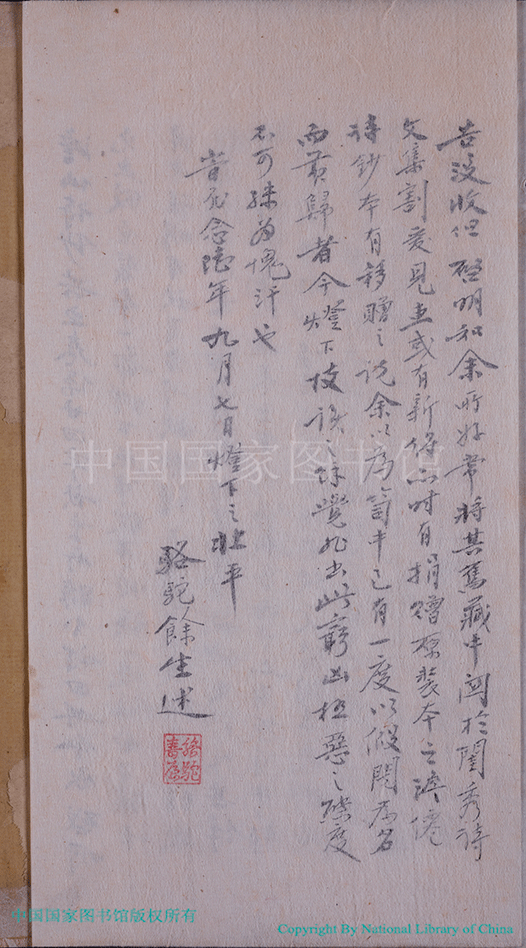 告没收但啓明和余所好常將其舊藏中關於閨秀詩
文集割爱見惠或有新得亦时有捐贈原裝本之
詩鈔本有移贈之説余以爲篋中已有一度以假閲爲名
而黄歸者今燈下校讀之餘覺如此窮凶極惡之態度
不可殊爲愧汗也
時民念陸年九月七日燈下之北平
駱駝餘生述
中国国家图书馆
中国国家图书馆版权所有
Copyright By National Library of China